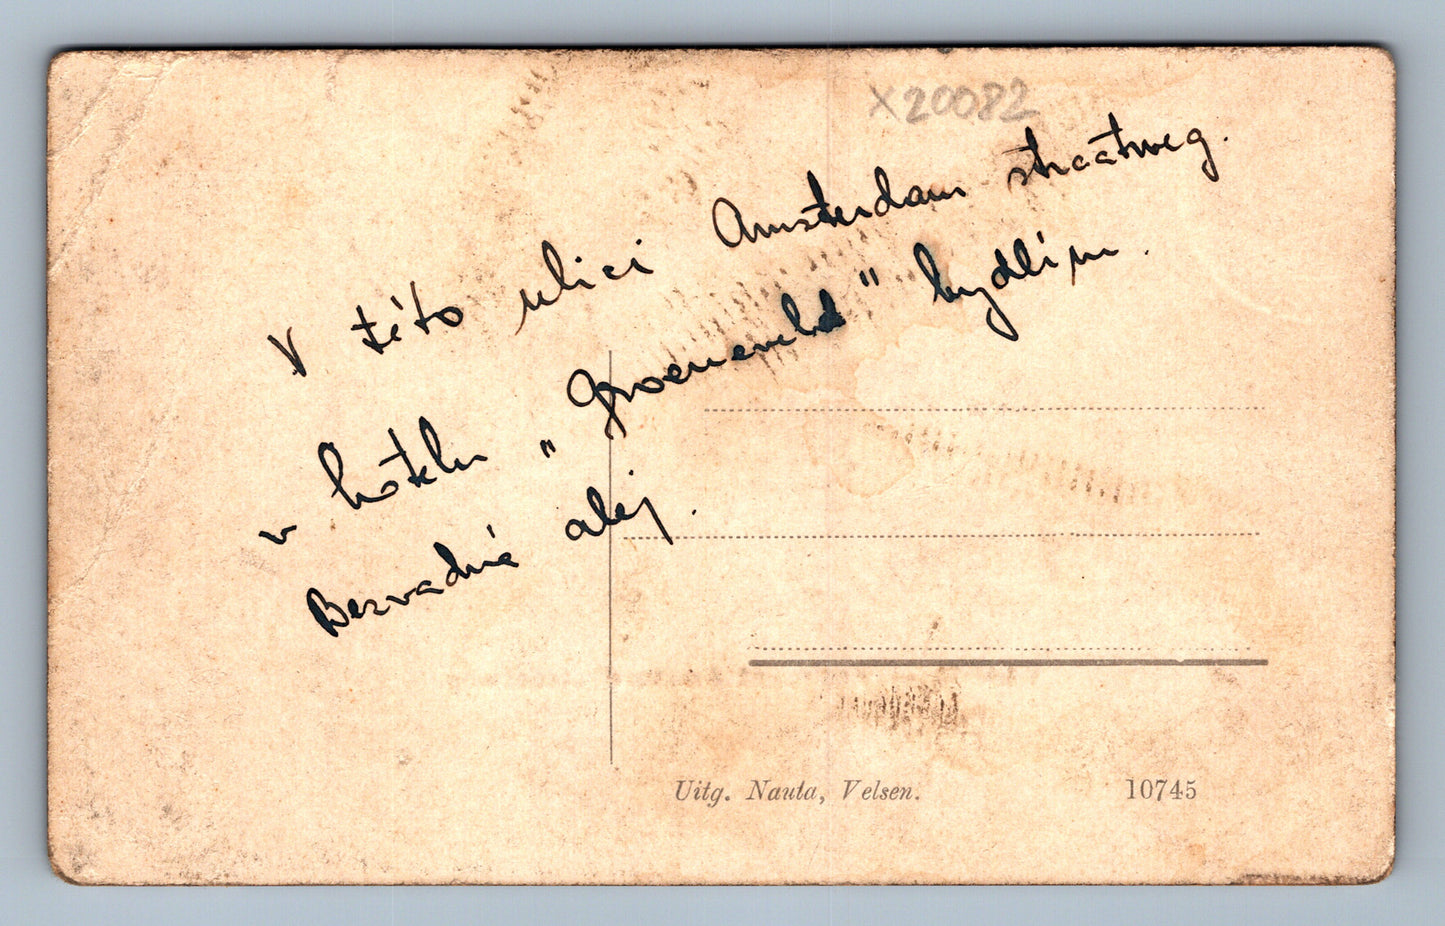 X20082
V této ulici Amsterdam straatweg.
v hotelu „Groeneveld" bydlím.
Bezvadná alej.
Uitg. Nauta, Velsen.
10745